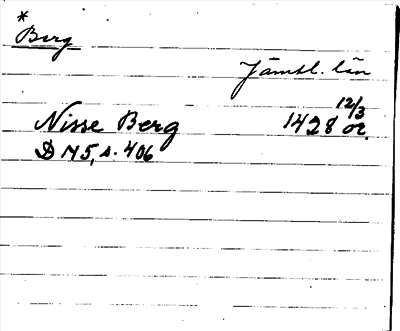 *
Berg
Jämtl. län
12/3
Nisse Berg 1428 or.
D N5, s. 406